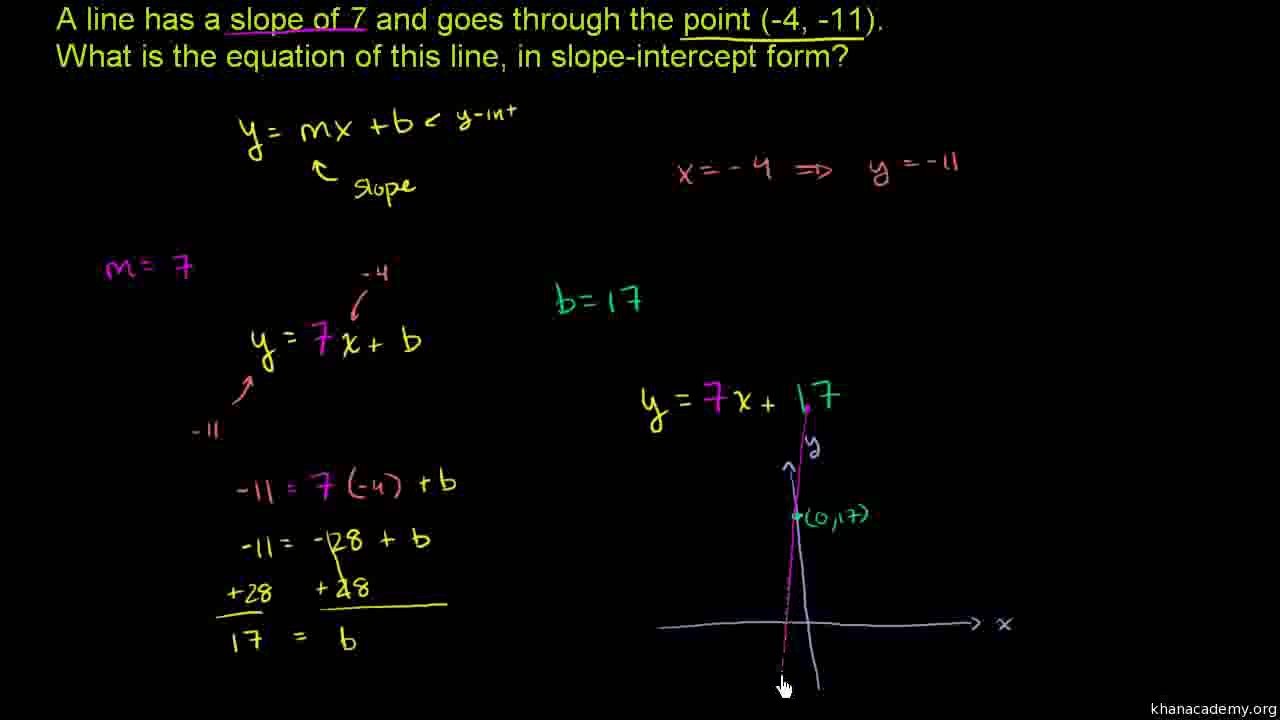 A line has a slope of 7 and goes through the point (-4, -11).
What is the equation of this line, in slope-intercept form?
y = mx + b < y-int
slope
x = -4 ⇒ y = -11
m = 7
-4
b = 17
y = 7x + b
-11
y = 7x + 17
y
-11 = 7 (-4) + b
(0,17)
-11 = -28 + b
+28 +28
17 = b
x
khanacademy.org